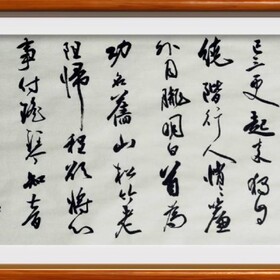 已三更起來獨自
繞階行人悄々簾
外月朧明白首為
功名舊山松竹老
阻歸程欲將心
事付瑤琴知音